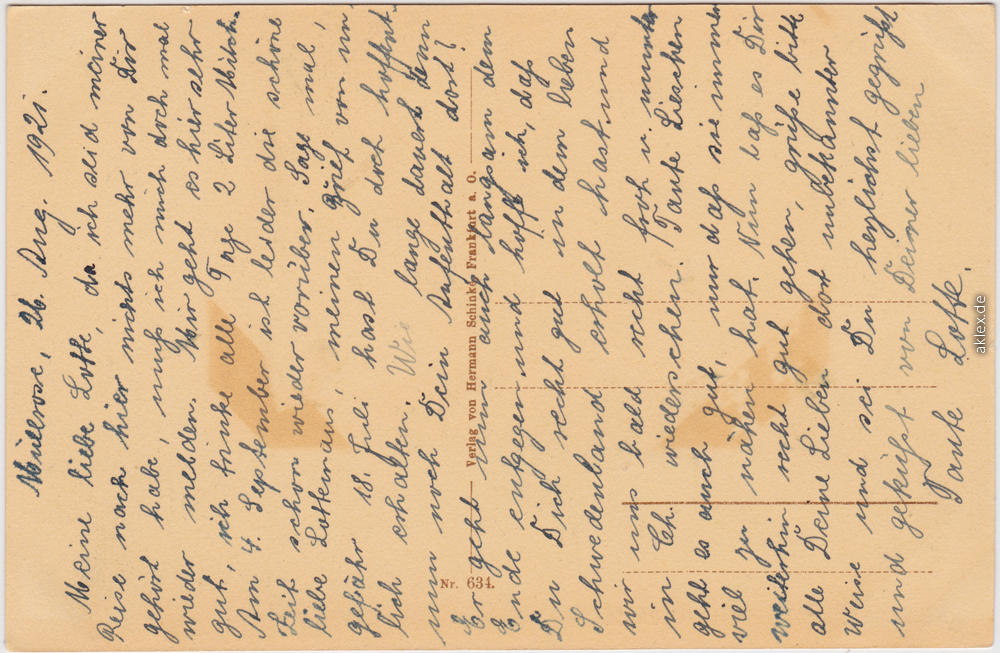 Müllrose, 26. Aug. 1921.
Meine liebe Lotte, da ich seid meiner
Reise nach hier nichts mehr von Dir
gehört habe, muß ich mich doch mal
wieder melden. Mir geht es hier sehr
gut, ich trinke alle Tage 2 Liter Milch.
Am 4. September ist leider die schöne
Zeit schon wieder vorüber. Sage mal,
liebe Lottemaus, meinen Brief von un,
gefähr 18. Juli hast Du doch hoffent-
lich erhalten. Wie lange dauert denn
nun noch Dein Aufenthalt dort?
Er geht nun auch langsam dem
Ende entgegen und hoffe ich, daß
Du Dich recht gut in dem lieben
Schwedenland erholt hast und
wir uns bald recht froh u. munter
in Ch. wiedersehen. Tante Lieschen
geht es auch gut, nur daß sie immer
viel zu nähen hat. Nun laß es Dir
weiterhin recht gut gehen, grüße bitte
alle Deine Lieben dort unbekannter
Weise und sei Du herzlichst gegrüßt
und geküsst von Deiner lieben
Tante Lotte.
Verlag von Hermann Schinke Frankfurt a. O.
Nr. 634.
aklex.de